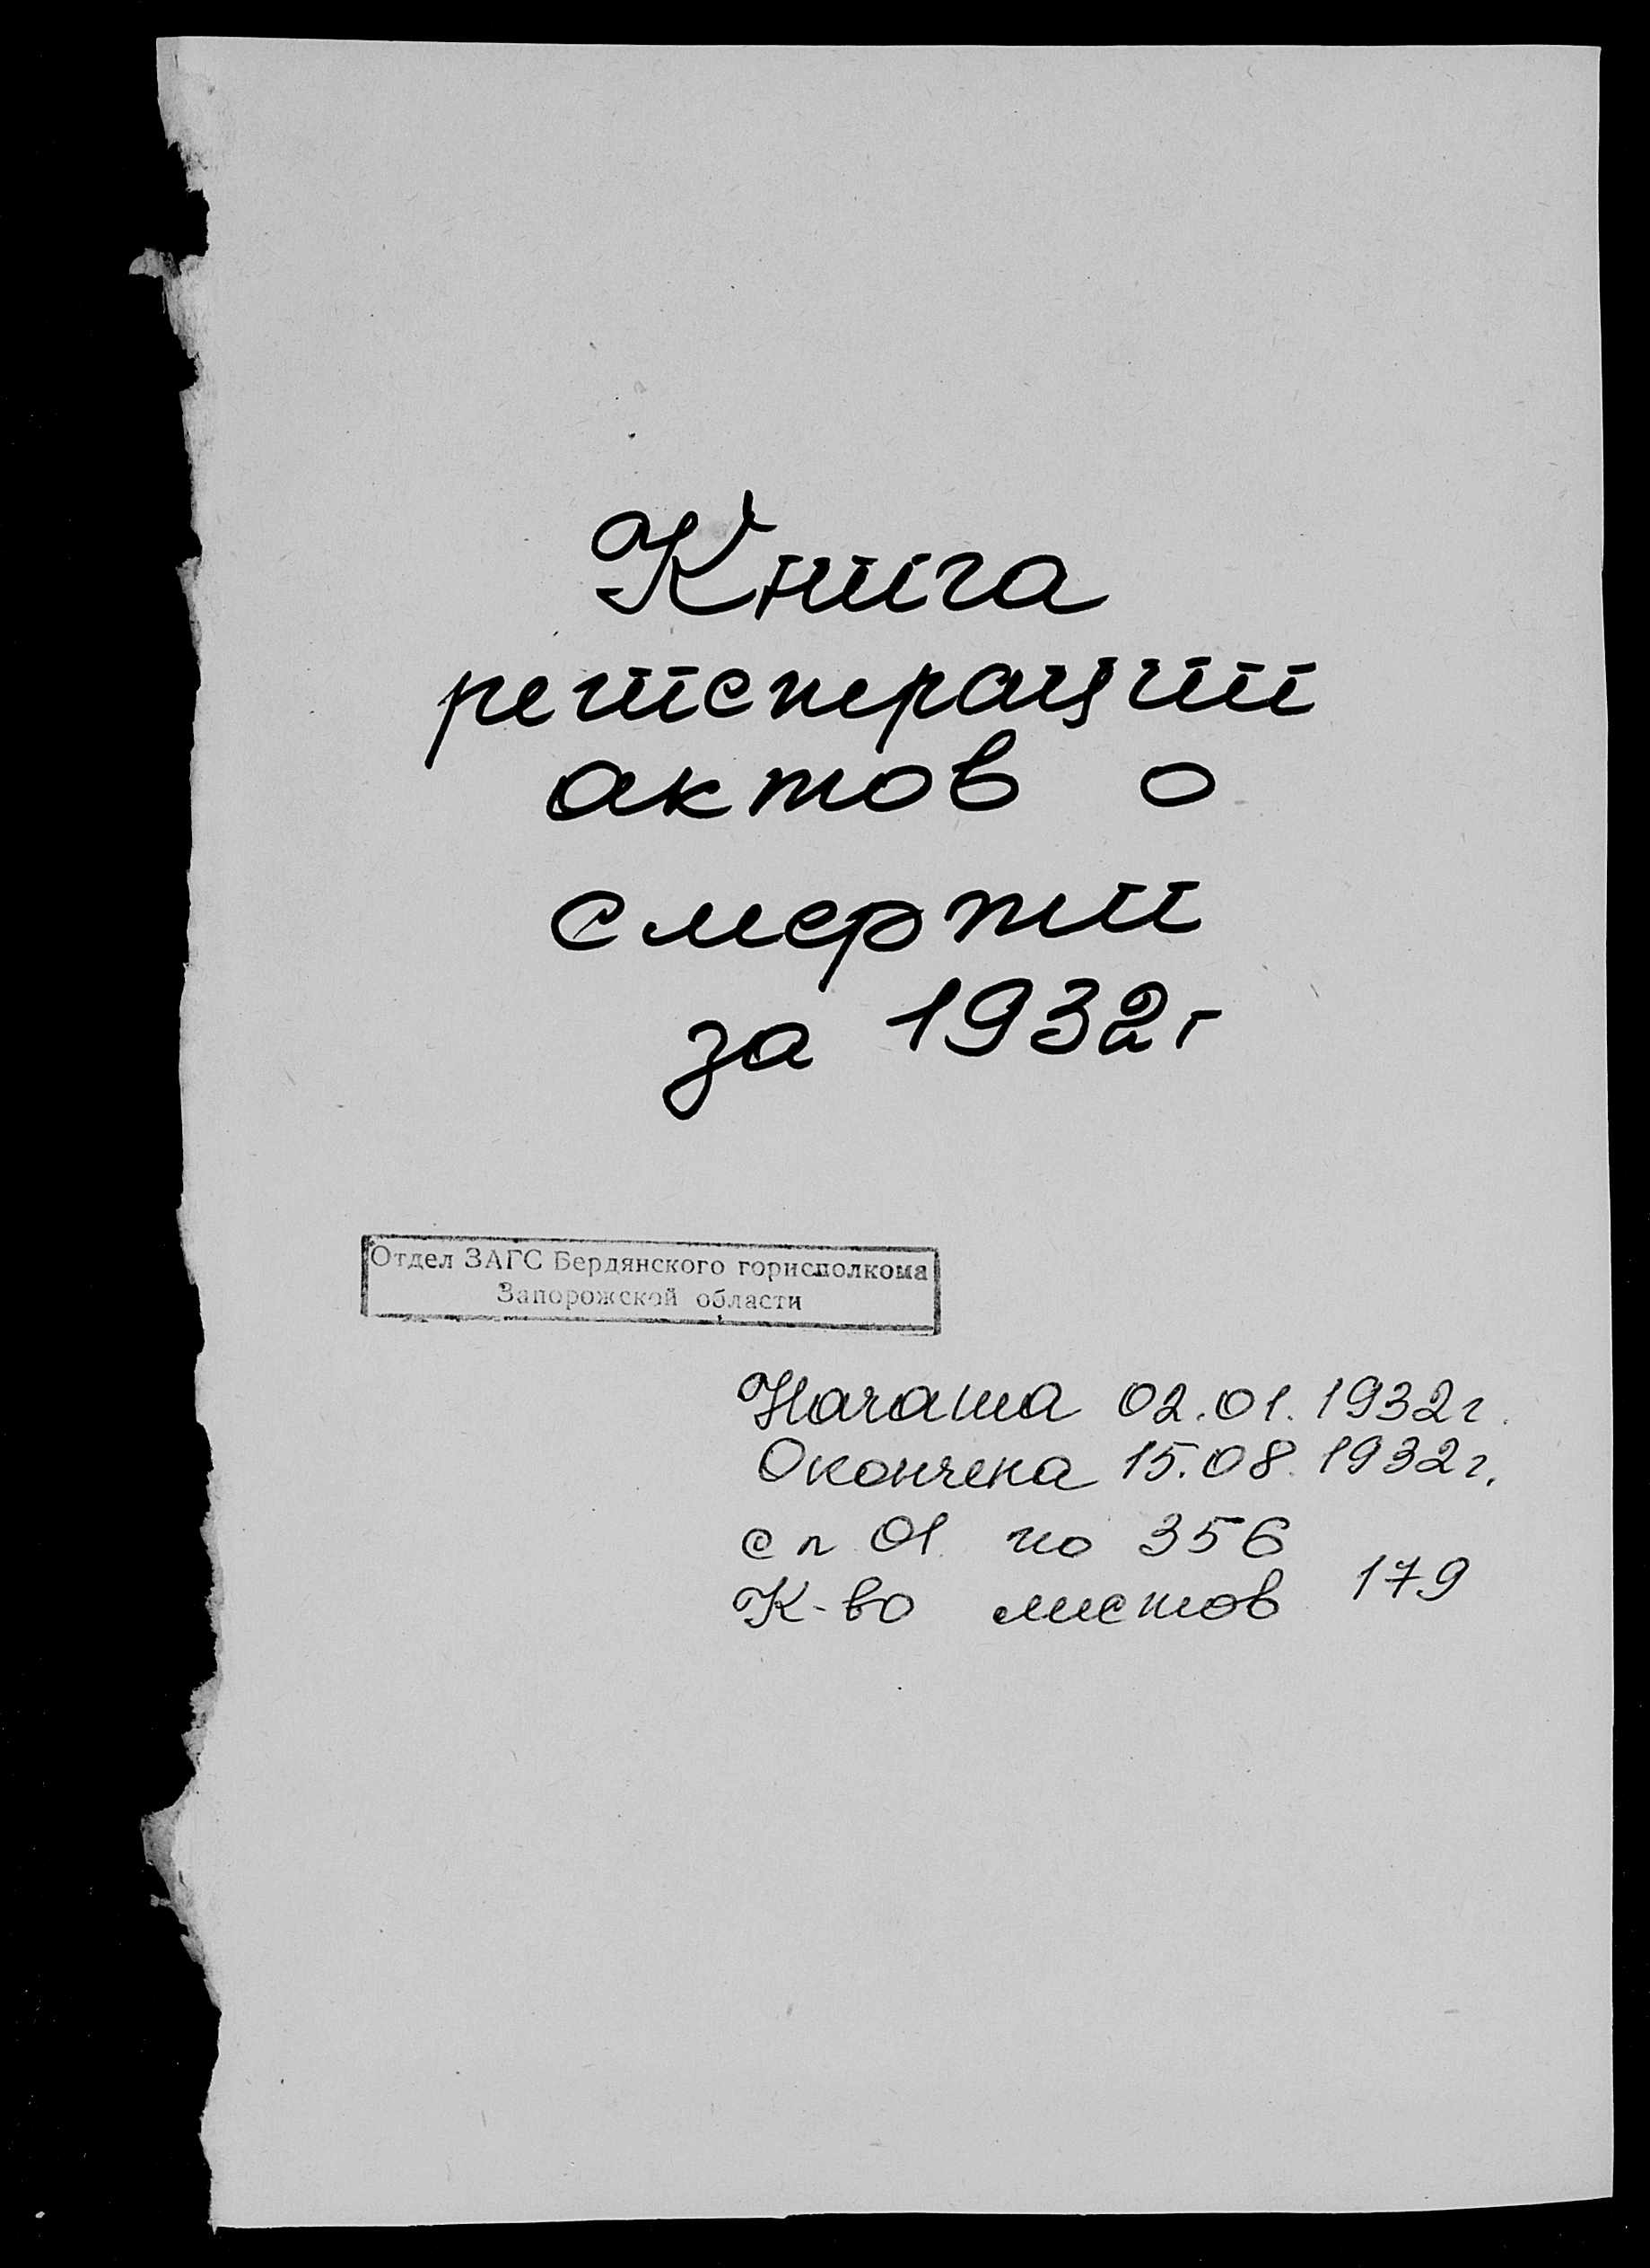 Книга
регистрации
актов о
смерти
за 1932г
Отдел ЗАГС Бердянского горисполкома
Запорожской области
Начата 02.01.1932г.
Окончена 15.08.1932г.
с п 01 по 356
К-во листов 179